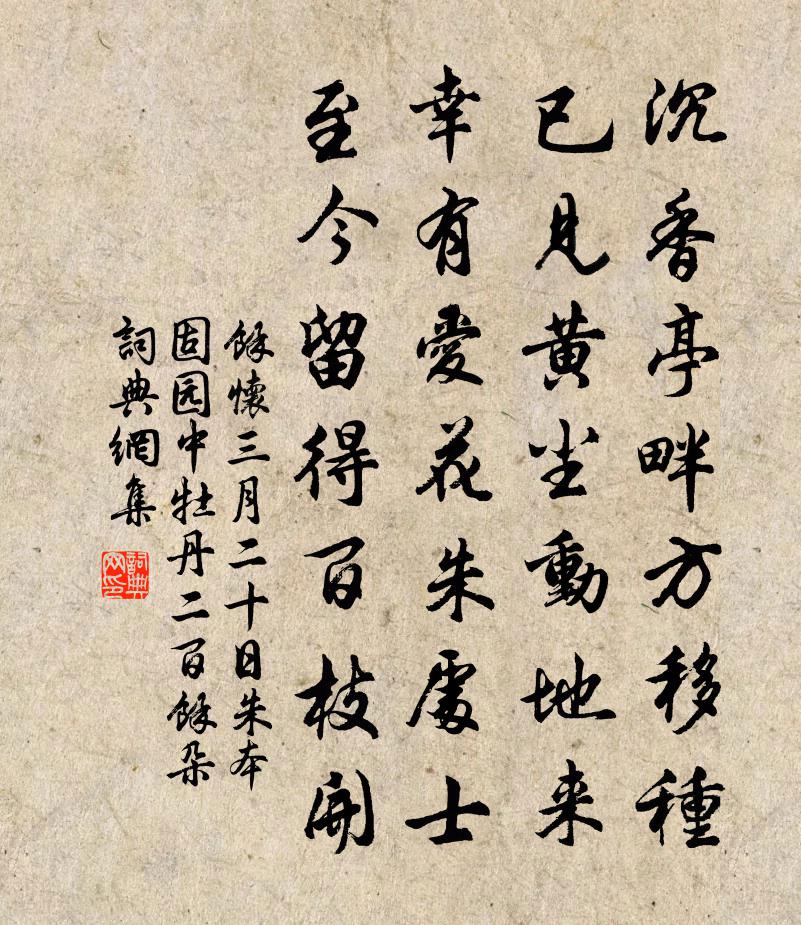 沉香亭畔方移種
已見黄尘動地来
幸有愛花朱處士
至今留得百枝開
餘懷三月二十日朱本
固园中牡丹二百餘朵
詞典網集
詞典
网印